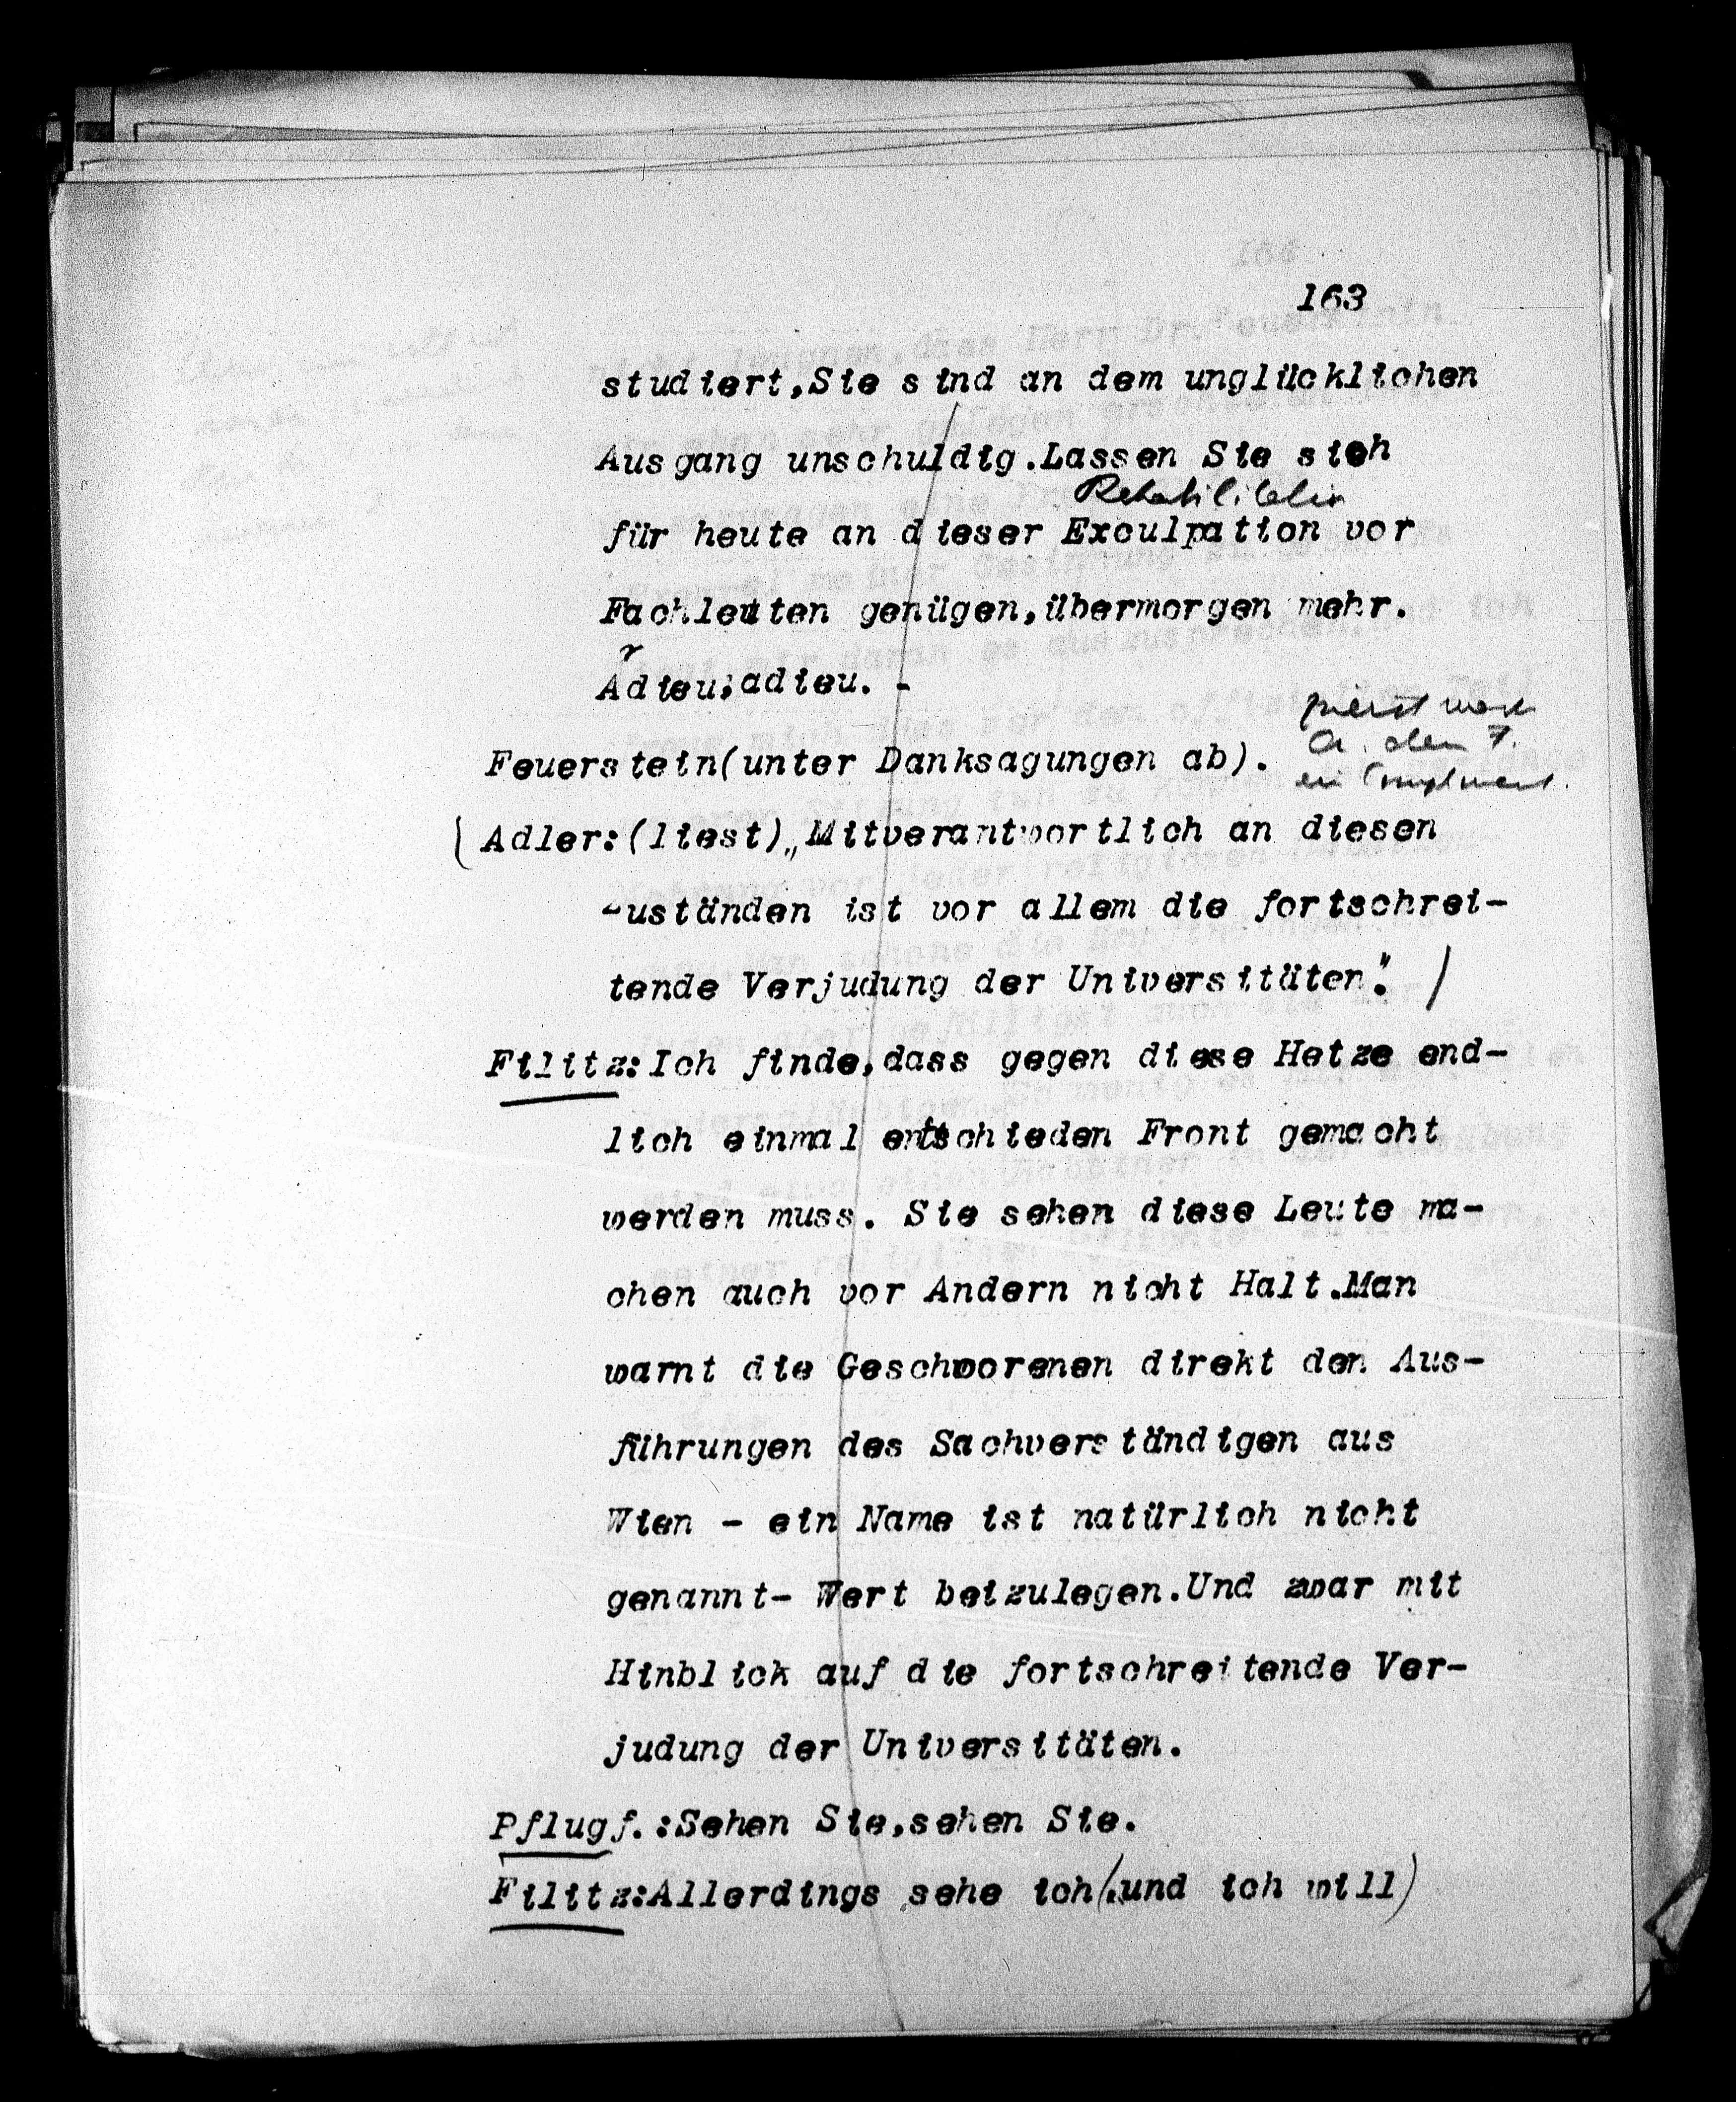 163
studiert,Sie sind an dem unglücklichen
Ausgang unschuldig.Lassen Sie sich
Rehabilitation
für heute an dieser Exculpation vor
Fachleuten genügen,übermorgen mehr.
Adieu,adieu. -
Feuerstein(unter Danksagungen ab).
den 7.
(Adler:(liest)„Mitverantwortlich an diesen
Zuständen ist vor allem die fortschrei-
tende Verjudung der Universitäten". )
Filitz:Ich finde,dass gegen diese Hetze end-
lich einmal entschieden Front gemacht
werden muss. Sie sehen diese Leute ma-
chen auch vor Andern nicht Halt.Man
warnt die Geschworenen direkt den Aus-
führungen des Sachverständigen aus
Wien - ein Name ist natürlich nicht
genannt- Wert beizulegen.Und zwar mit
Hinblick auf die fortschreitende Ver-
judung der Universitäten.
Pflugf.:Sehen Sie,sehen Sie.
Filitz:Allerdings sehe ich(.und ich will)